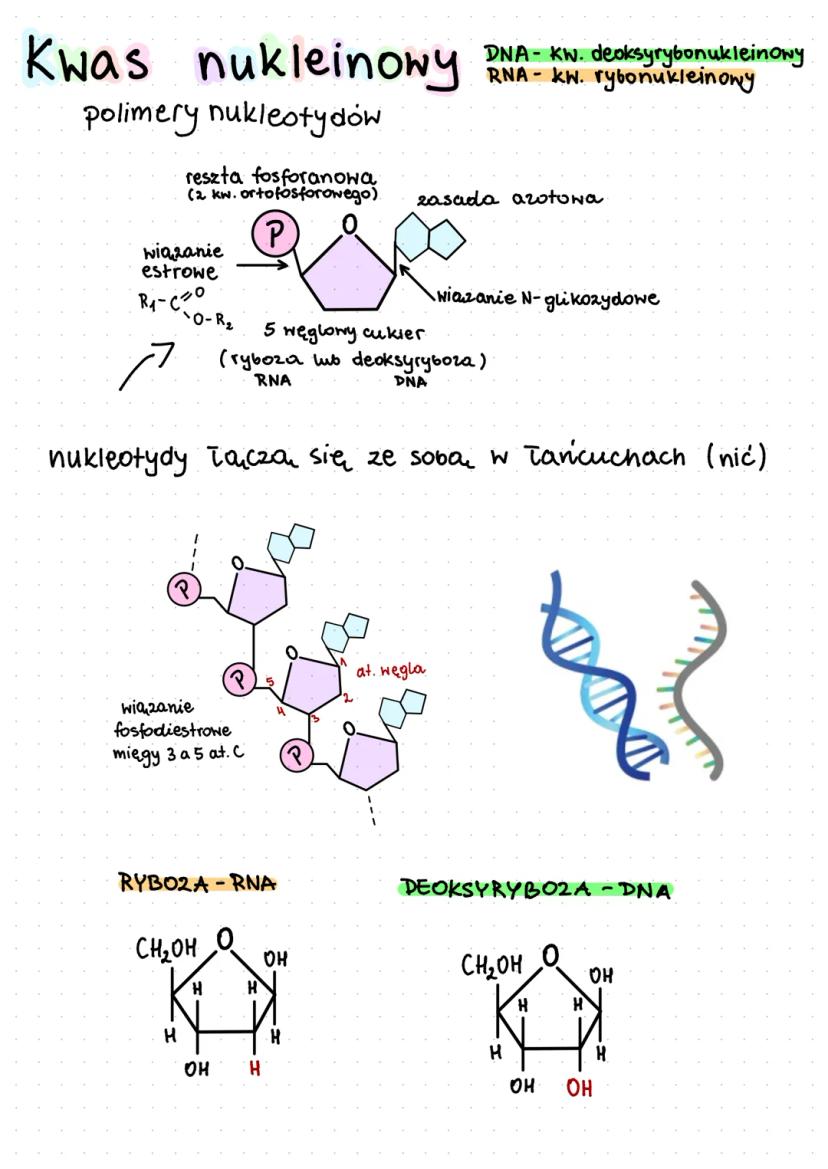 Kwas nukleinowy
DNA - kw. deoksyrybonukleinowy
RNA - kw. rybonukleinowy
polimery nukleotydów
reszta fosforanowa
(z kw. ortofosforowego)
zasada azotowa
P
O
wiązanie
estrowe
R₁-C=O
O-R₂
wiązanie N-glikozydowe
5 węglowy cukier
(ryboza lub deoksyryboza)
RNA DNA
nukleotydy łączą się ze sobą w łańcuchach (nić)
O
P
O
1 at. węgla
P
5
2
4
3
wiązanie
fosfodiestrowe
mięgy 3 a 5 at. C
O
P
RYBOZA - RNA
DEOKSYRYBOZA - DNA
CH₂OH O OH
H H
H H
OH H
CH₂OH O OH
H H
H H
OH OH